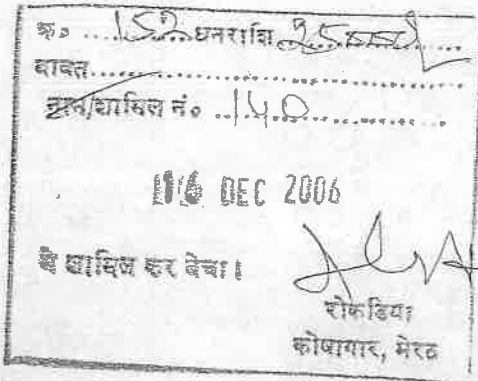 क्र० ....152....धनराशि 25000/
बावत....................
नाम/दाखिल नं० ..140.............
DEC 2006
में दाखिल कर लेवा।
रोकड़िया
कोषागार, मेरठ